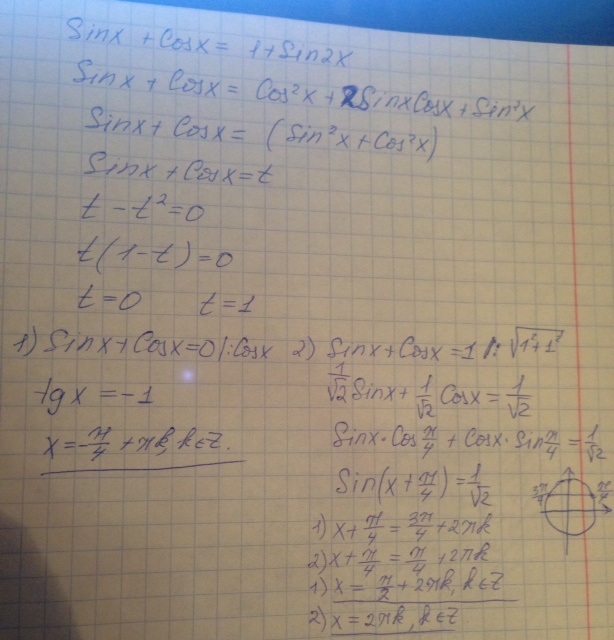 Sinx + Cosx = 1 + Sin2x
Sinx + Cosx = Cos²x + 2SinxCosx + Sin²x
Sinx + Cosx = (Sin²x + Cos²x)
Sinx + Cosx = t
t - t² = 0
t(1 - t) = 0
t = 0 t = 1
1) Sinx + Cosx = 0 |: Cosx
tgx = -1
x = -π/4 + πk, k∈Z.
2) Sinx + Cosx = 1 |: √(1²+1²)
1/√2 Sinx + 1/√2 Cosx = 1/√2
Sinx · Cos π/4 + Cosx · Sin π/4 = 1/√2
Sin(x + π/4) = 1/√2
3π/4 π/4
1) x + π/4 = 3π/4 + 2πk
2) x + π/4 = π/4 + 2πk
1) x = π/2 + 2πk, k∈Z
2) x = 2πk, k∈Z